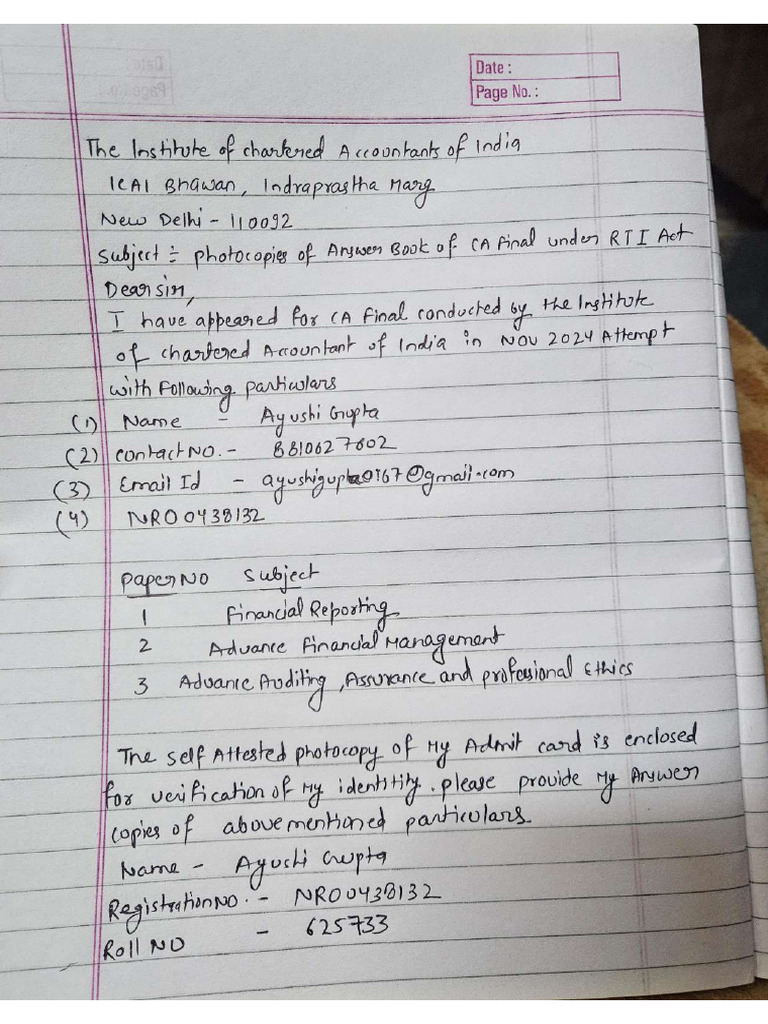 Date :
Page No. :
The Institute of chartered Accountants of India
ICAI Bhawan, Indraprastha Marg
New Delhi - 110092
Subject :- photocopies of Answer Book of CA final under RTI Act
Dear sir,
I have appeared for CA final conducted by the Institute
of chartered Accountant of India in NOV 2024 Attempt
with following particulars
(1) Name - Ayushi Gupta
(2) contact NO. - 8810627602
(3) Email Id - ayushigupta0167@gmail.com
(4) NRO0438132
paper NO subject
1 financial Reporting
2 Advance financial Management
3 Advance Auditing, Assurance and professional Ethics
The self Attested photocopy of My Admit card is enclosed
for verification of My identitity. please provide My Answer
copies of above mentioned particulars.
Name - Ayushi Gupta
Registration NO. - NRO0438132
Roll NO - 625733